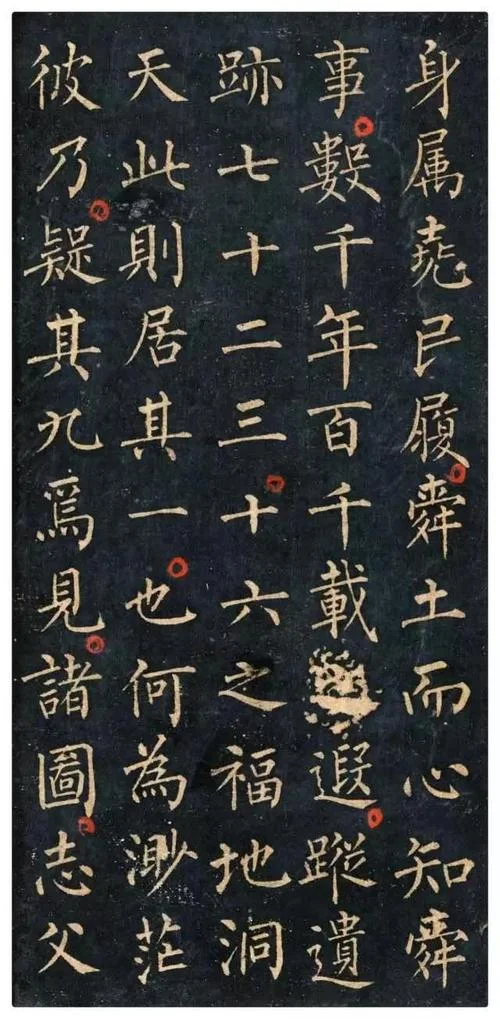 身属堯民履舜土而心知舜
事數千年百千載遐蹤遺
跡七十二三十六之福地洞
天此則居其一也何為渺茫
彼乃疑其九焉見諸圖志父